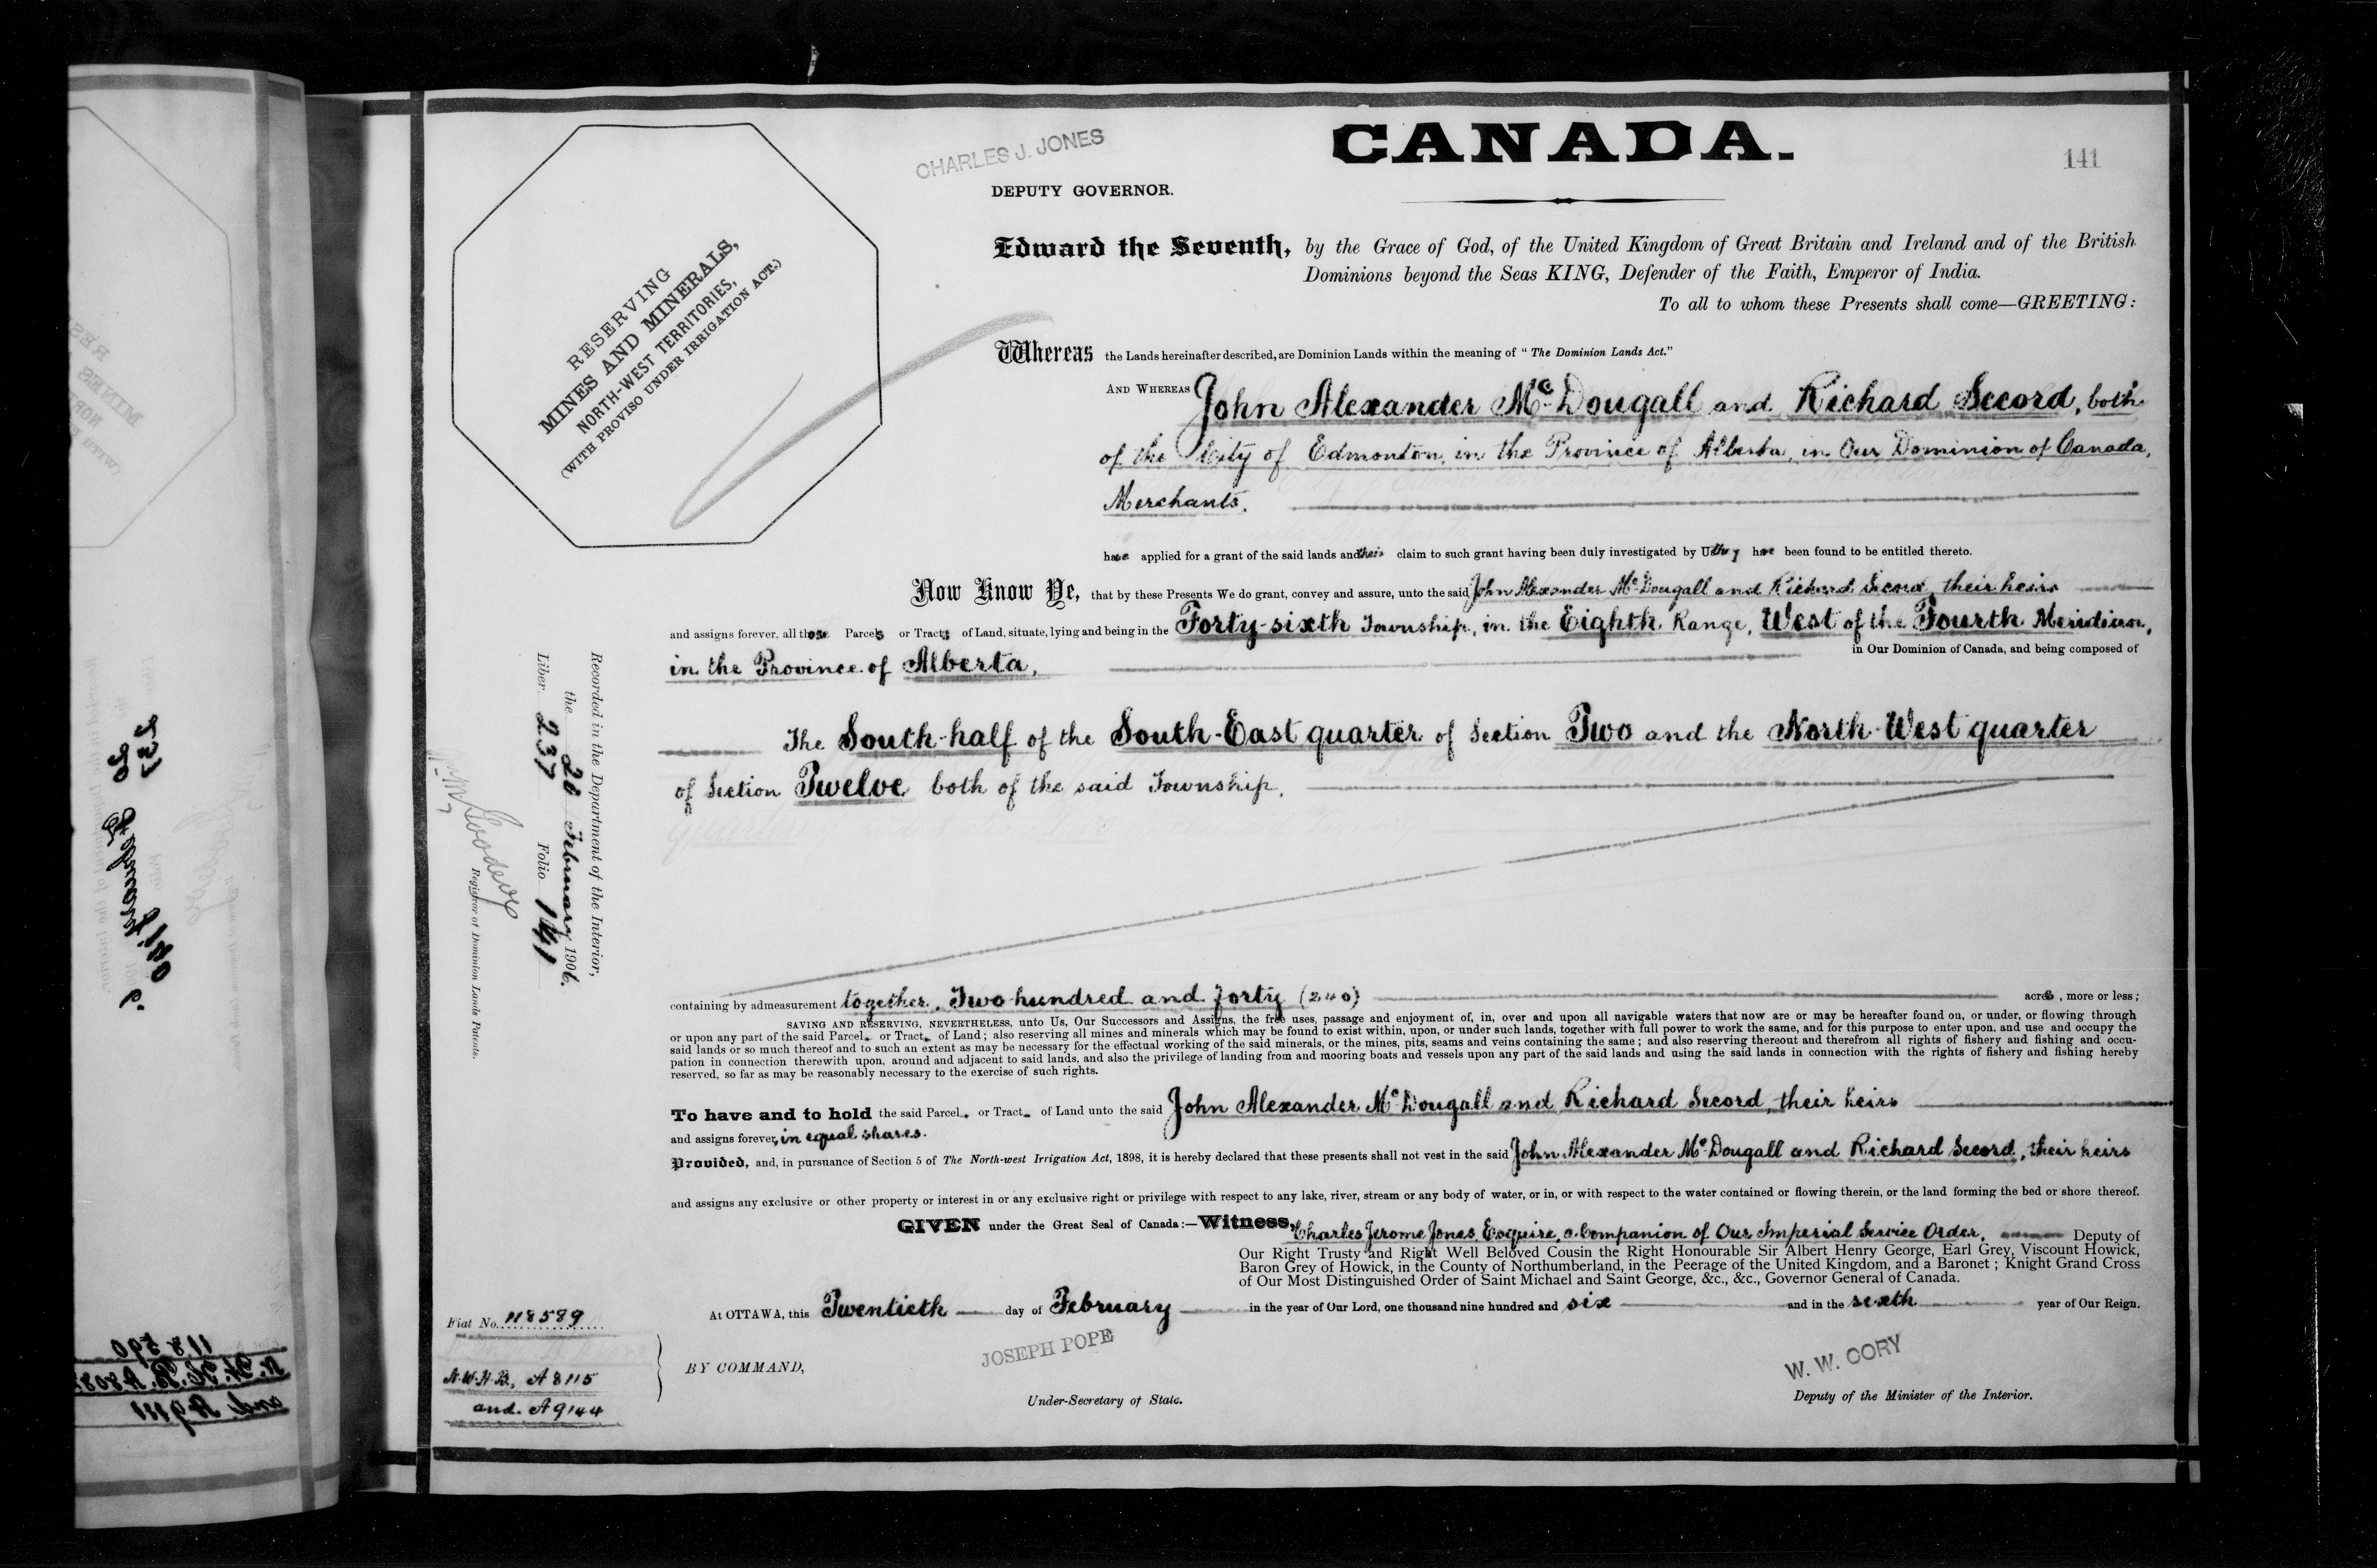 CANADA.
141
CHARLES J. JONES
DEPUTY GOVERNOR.
RESERVING
MINES AND MINERALS,
NORTH-WEST TERRITORIES,
(WITH PROVISO UNDER IRRIGATION ACT.)
Edward the Seventh, by the Grace of God, of the United Kingdom of Great Britain and Ireland and of the British
Dominions beyond the Seas KING, Defender of the Faith, Emperor of India.
To all to whom these Presents shall come—GREETING:
Whereas the Lands hereinafter described, are Dominion Lands within the meaning of "The Dominion Lands Act."
AND WHEREAS John Alexander McDougall and Richard Secord, both
of the City of Edmonton, in the Province of Alberta, in Our Dominion of Canada,
Merchants.
have applied for a grant of the said lands and their claim to such grant having been duly investigated by Us they have been found to be entitled thereto.
Now Know Ye, that by these Presents We do grant, convey and assure, unto the said John Alexander McDougall and Richard Secord, their heirs
and assigns forever, all those Parcels or Tracts of Land, situate, lying and being in the Forty-sixth Township, in the Eighth Range, West of the Fourth Meridian,
in the Province of Alberta, in Our Dominion of Canada, and being composed of
The South-half of the South-East quarter of Section Two and the North-West quarter
of Section Twelve both of the said Township.
containing by admeasurement together, Two hundred and forty (240) acres, more or less;
SAVING AND RESERVING, NEVERTHELESS, unto Us, Our Successors and Assigns, the free uses, passage and enjoyment of, in, over and upon all navigable waters that now are or may be hereafter found on, or under, or flowing through
or upon any part of the said Parcels or Tracts of Land; also reserving all mines and minerals which may be found to exist within, upon, or under such lands, together with full power to work the same, and for this purpose to enter upon, and use and occupy the
said lands or so much thereof and to such an extent as may be necessary for the effectual working of the said minerals, or the mines, pits, seams and veins containing the same; and also reserving thereout and therefrom all rights of fishery and fishing and occu-
pation in connection therewith upon, around and adjacent to said lands, and also the privilege of landing from and mooring boats and vessels upon any part of the said lands and using the said lands in connection with the rights of fishery and fishing hereby
reserved, so far as may be reasonably necessary to the exercise of such rights.
To have and to hold the said Parcels or Tracts of Land unto the said John Alexander McDougall and Richard Secord, their heirs
and assigns forever, in equal shares.
Provided, and, in pursuance of Section 5 of The North-west Irrigation Act, 1898, it is hereby declared that these presents shall not vest in the said John Alexander McDougall and Richard Secord, their heirs
and assigns any exclusive or other property or interest in or any exclusive right or privilege with respect to any lake, river, stream or any body of water, or in, or with respect to the water contained or flowing therein, or the land forming the bed or shore thereof.
GIVEN under the Great Seal of Canada:—Witness, Charles Jerome Jones, Esquire, a Companion of Our Imperial Service Order, Deputy of
Our Right Trusty and Right Well Beloved Cousin the Right Honourable Sir Albert Henry George, Earl Grey, Viscount Howick,
Baron Grey of Howick, in the County of Northumberland, in the Peerage of the United Kingdom, and a Baronet; Knight Grand Cross
of Our Most Distinguished Order of Saint Michael and Saint George, &c., &c., Governor General of Canada.
At OTTAWA, this Twentieth day of February in the year of Our Lord, one thousand nine hundred and six and in the sixth year of Our Reign.
BY COMMAND,
JOSEPH POPE
Under-Secretary of State.
W. W. CORY
Deputy of the Minister of the Interior.
Recorded in the Department of the Interior,
the 20 February 1906.
Liber 237 Folio 141
Registrar of Dominion Lands Patents.
Fiat No. 118589
N.W.H.B., A 8115
and. A 9144